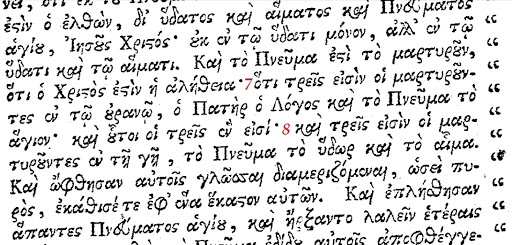 ἐςὶν ὁ ἐλθὼν, δι' ὕδατος καὶ αἵματος καὶ Πνεύματος “
ἁγίου, Ἰησοῦς Χριςός· οὐκ ἐν τῷ ὕδατι μόνον, ἀλλ' ἐν τῷ “
ὕδατι καὶ τῷ αἵματι. Καὶ τὸ Πνεῦμα ἐςὶ τὸ μαρτυροῦν, “
ὅτι ὁ Χριςὸς ἐςὶν ἡ ἀλήθεια·7ὅτι τρεῖς εἰσὶν οἱ μαρτυροῦν- “
τες ἐν τῷ οὐρανῷ, ὁ Πατὴρ ὁ Λόγος καὶ τὸ Πνεῦμα τὸ “
ἅγιον· καὶ οὗτοι οἱ τρεῖς ἕν εἰσι·8 καὶ τρεῖς εἰσὶν οἱ μαρ- “
τυροῦντες ἐν τῇ γῇ, τὸ Πνεῦμα τὸ ὕδωρ καὶ τὸ αἷμα. “
Καὶ ὤφθησαν αὐτοῖς γλῶσσαι διαμεριζόμεναι, ὡσεὶ πυ-
ρὸς, ἐκάθισέτε ἐφ' ἕνα ἕκαστον αὐτῶν. Καὶ ἐπλήσθησαν “
ἅπαντες Πνεύματος ἁγίου, καὶ ἤρξαντο λαλεῖν ἑτέραις “
Πνεῦμα ἐδίδου αὐτοῖς ἀποφθέγγε- “